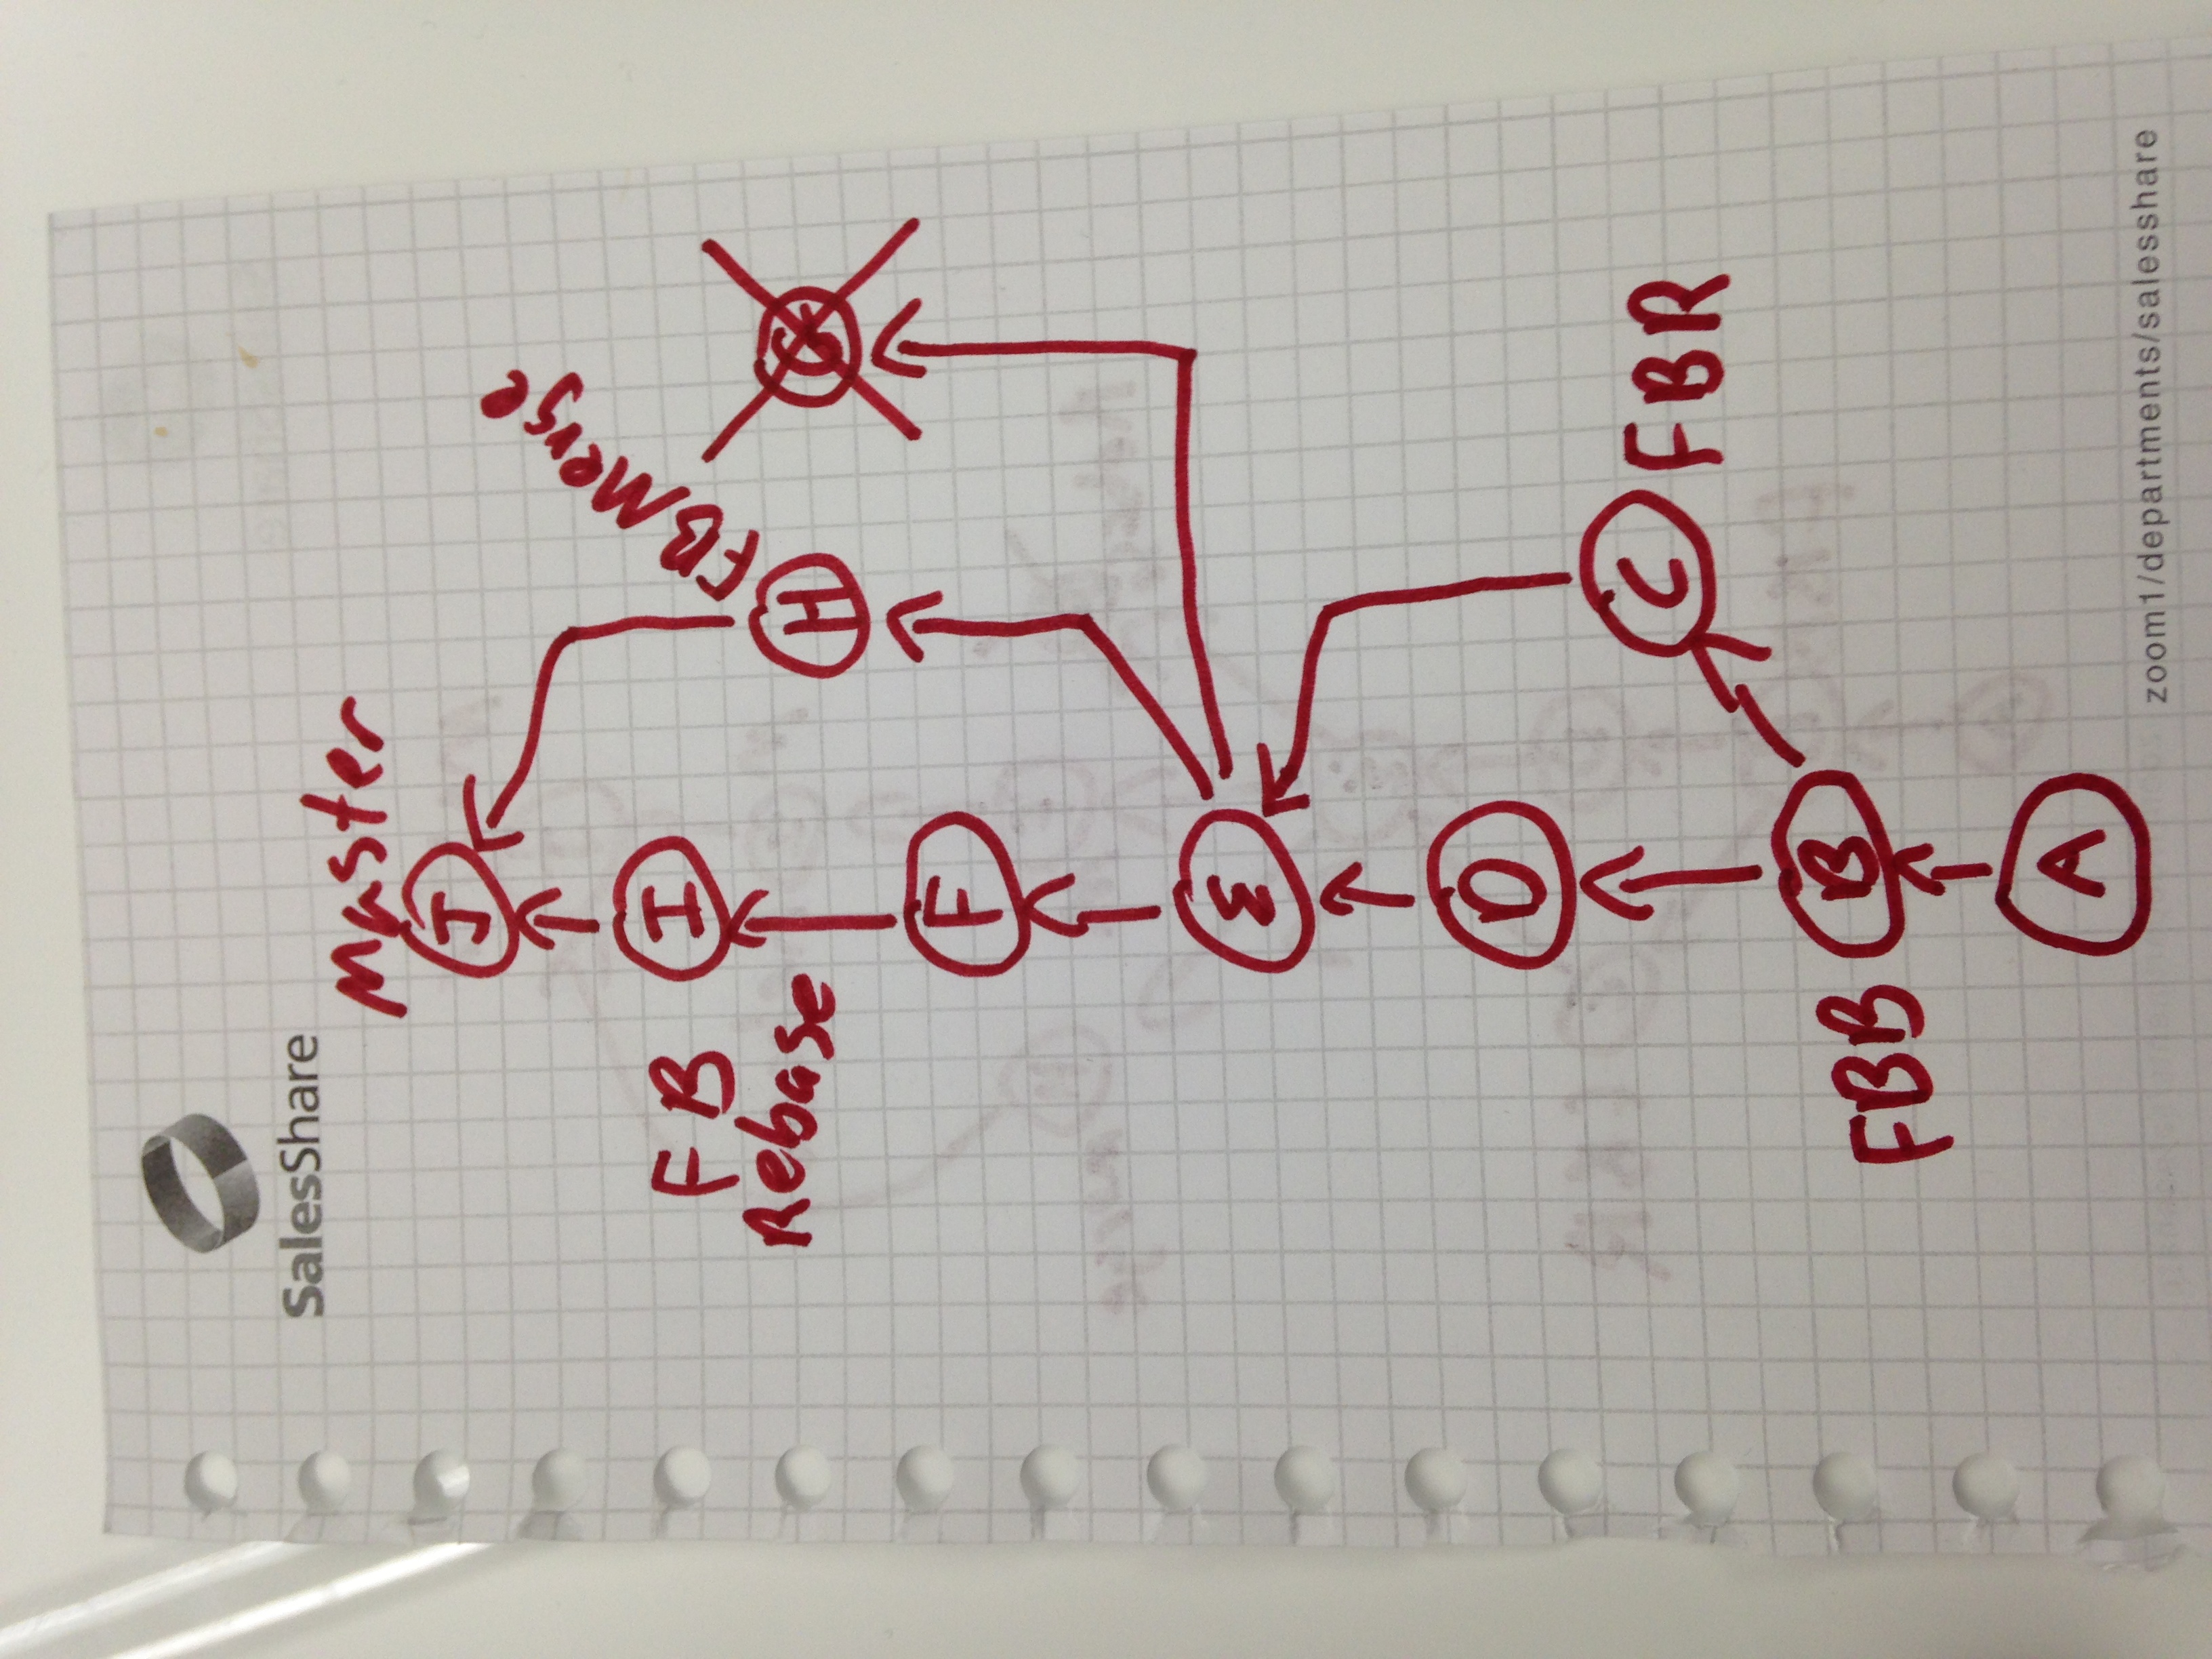 SalesShare
Master
J
FB Merge
I
FB
Rebase
H
G
F
E
D
C
FBR
FBB
B
A
zoom1/departments/salesshare